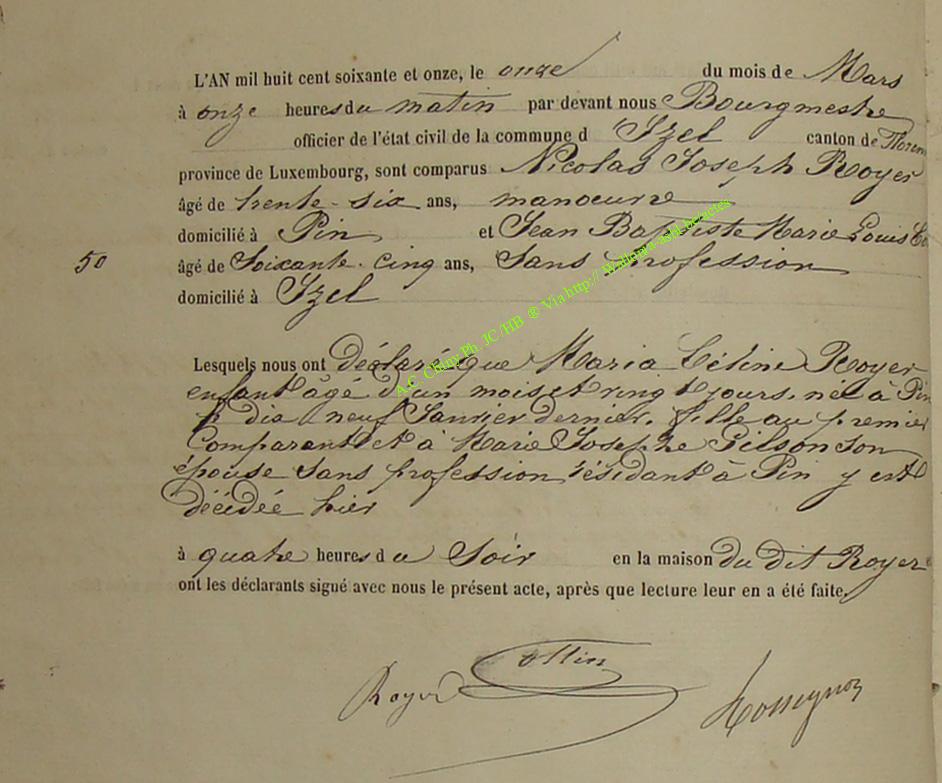 L'AN mil huit cent soixante et onze, le onze du mois de Mars
à onze heures du matin par devant nous Bourgmestre
officier de l'état civil de la commune d'Izel canton de Floren
province de Luxembourg, sont comparus Nicolas Joseph Royer
âgé de trente-six ans, manoeuvre
domicilié à Pin et Jean Baptiste Marie Louis Co
50 âgé de Soixante-cinq ans, Sans profession
domicilié à Izel
Lesquels nous ont déclaré que Maria Céline Royer
enfant âgé d'un mois et vingt jours, née à Pin
le dix neuf Janvier dernier, fille au premier
Comparant et à Marie Josephe Gilson son
épouse Sans profession résidant à Pin y est
décédée hier
à quatre heures du Soir en la maison du dit Royer
ont les déclarants signé avec nous le présent acte, après que lecture leur en a été faite.
Collin
Royer
Rossignon
A.C. Chiny Ph. JC/HB ® Via http://Wallonia-asbl.be/actes